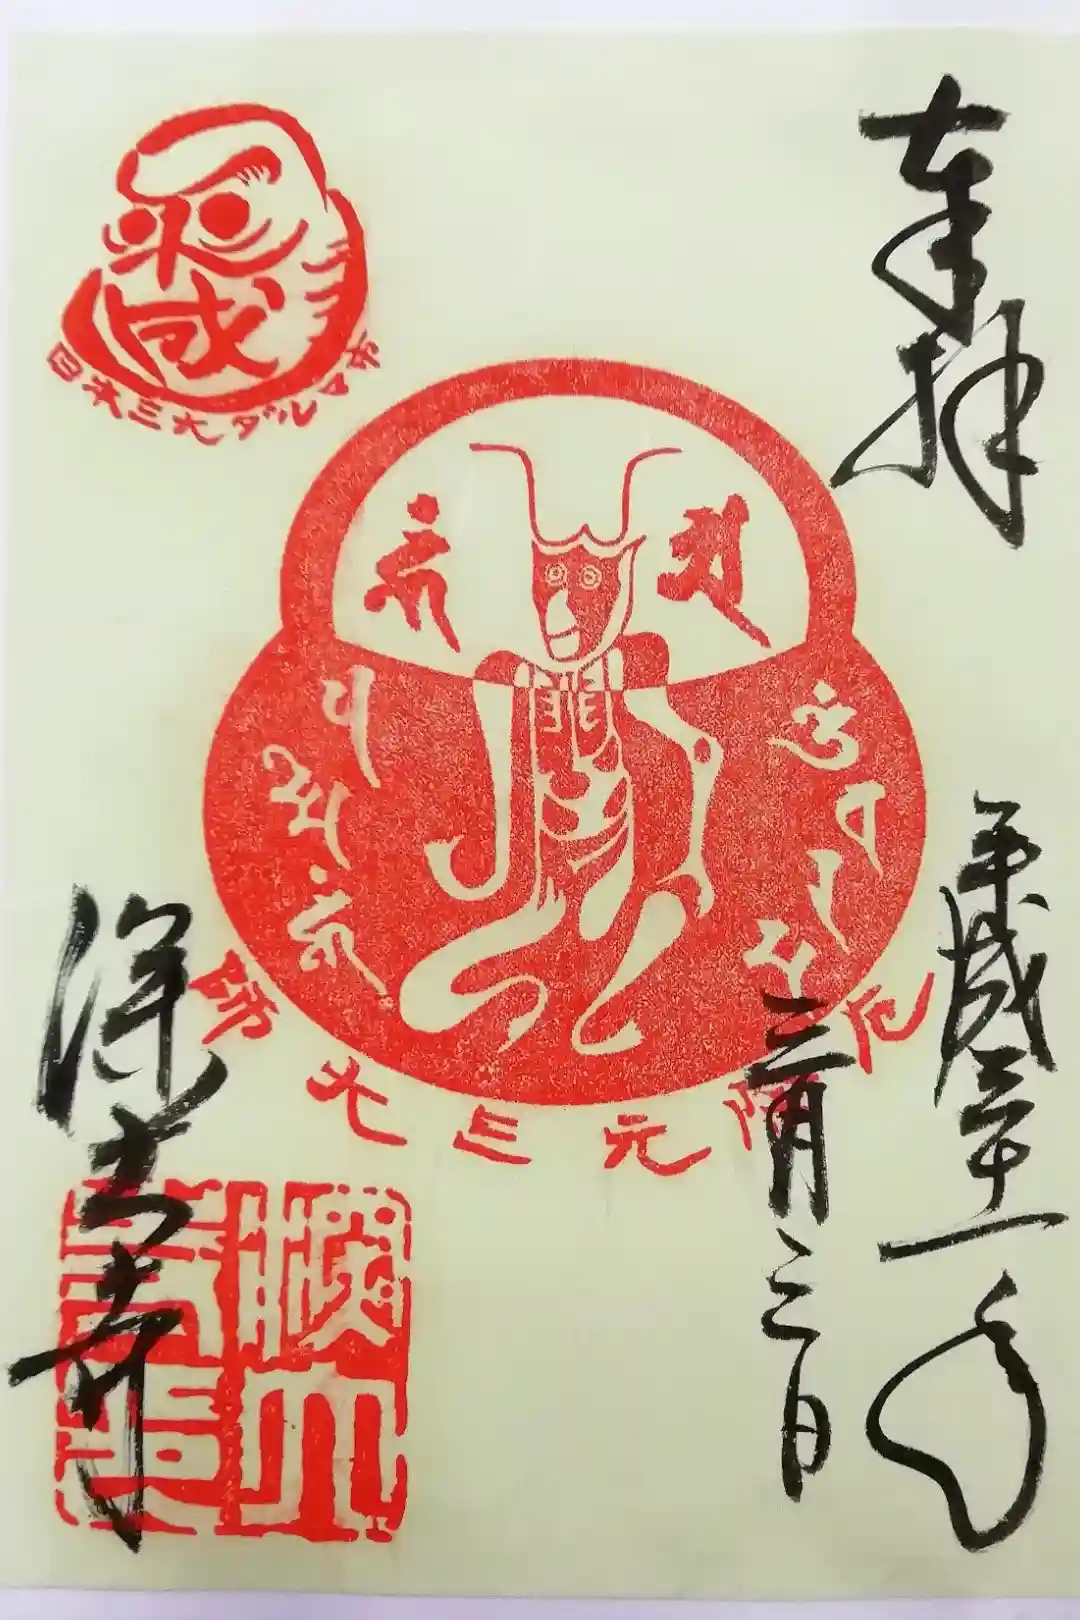 奉拝
平成三十一年
三月三日
厄除元三大師
日本三大ダルマ市
深大寺